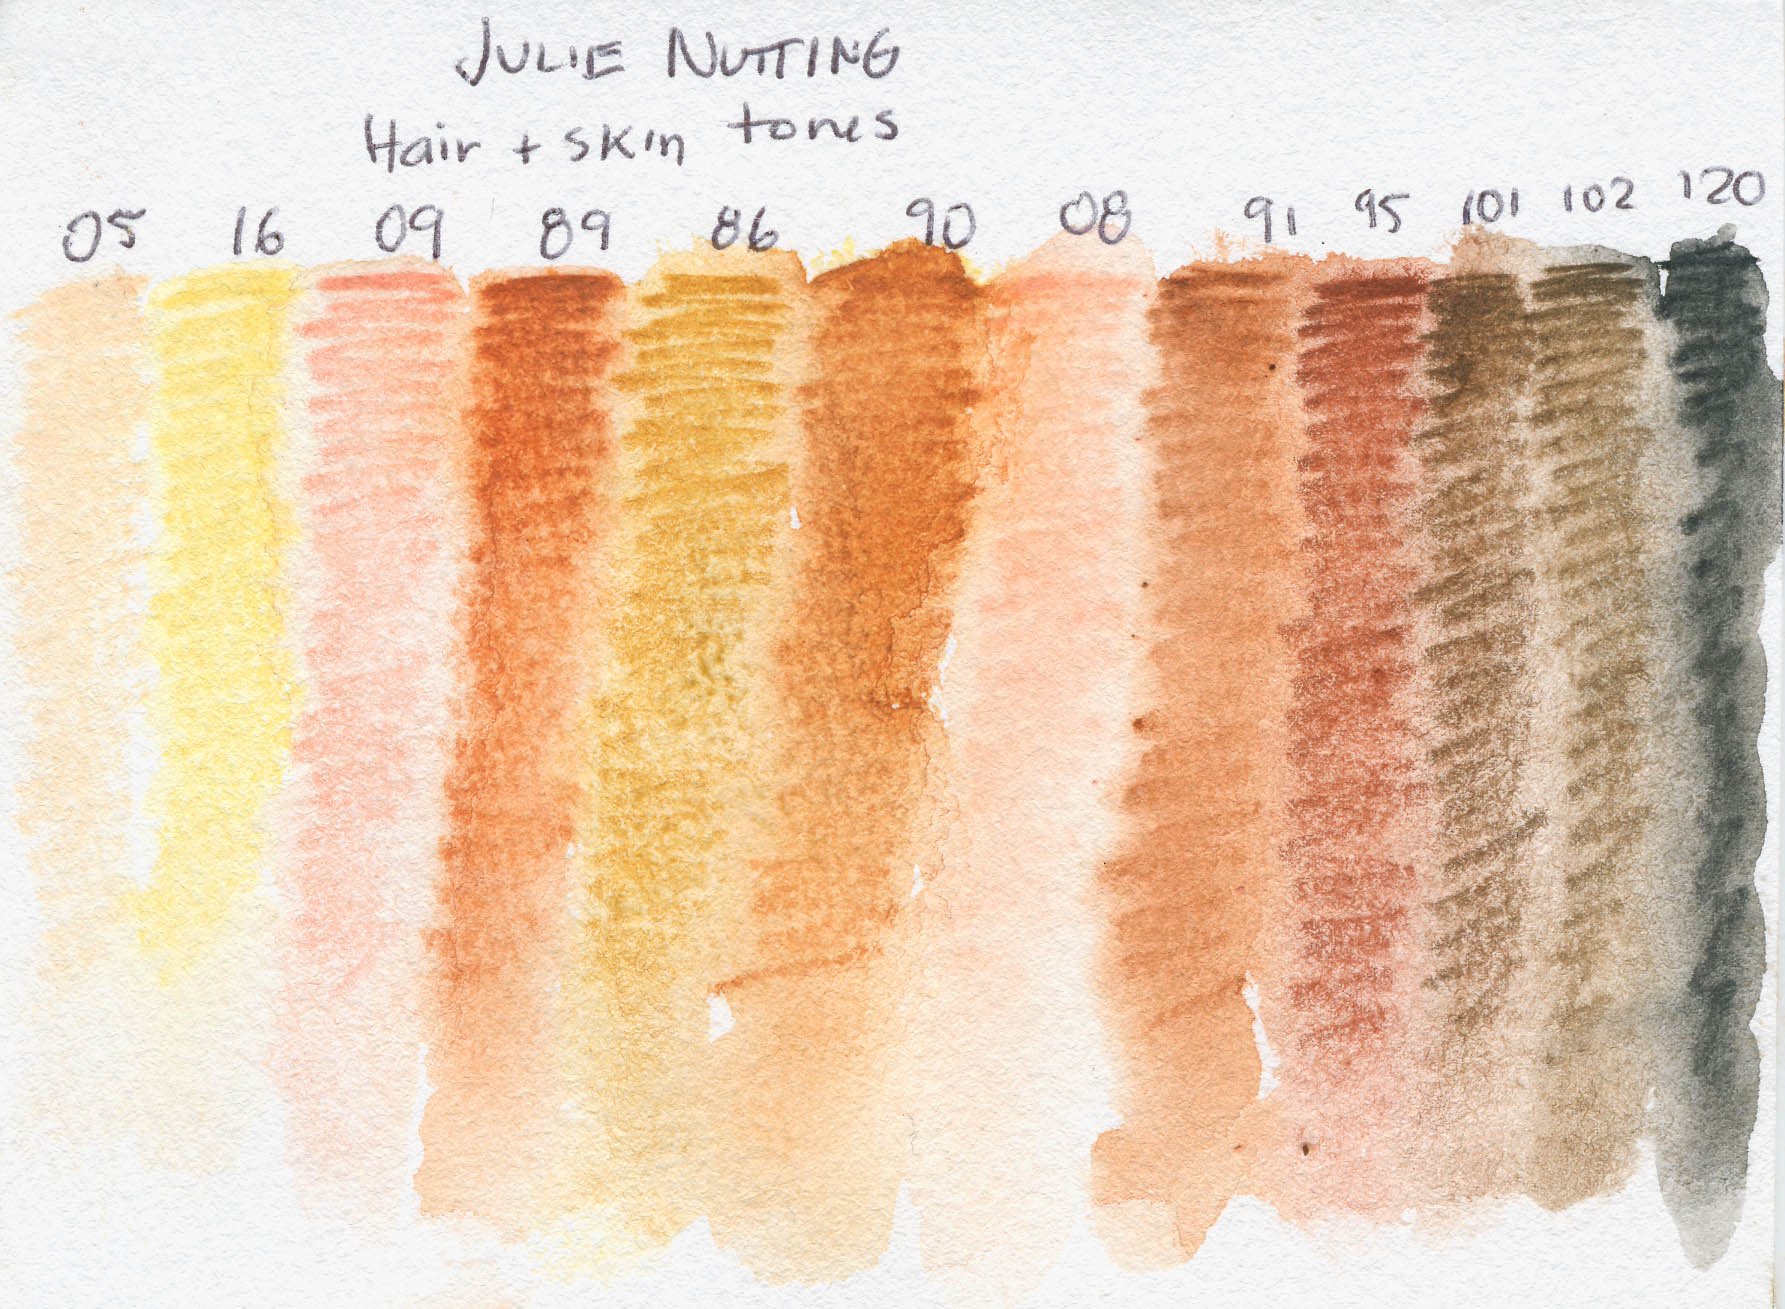 JULIE NUTTING
Hair + skin tones
05 16 09 89 86 90 08 91 95 101 102 120